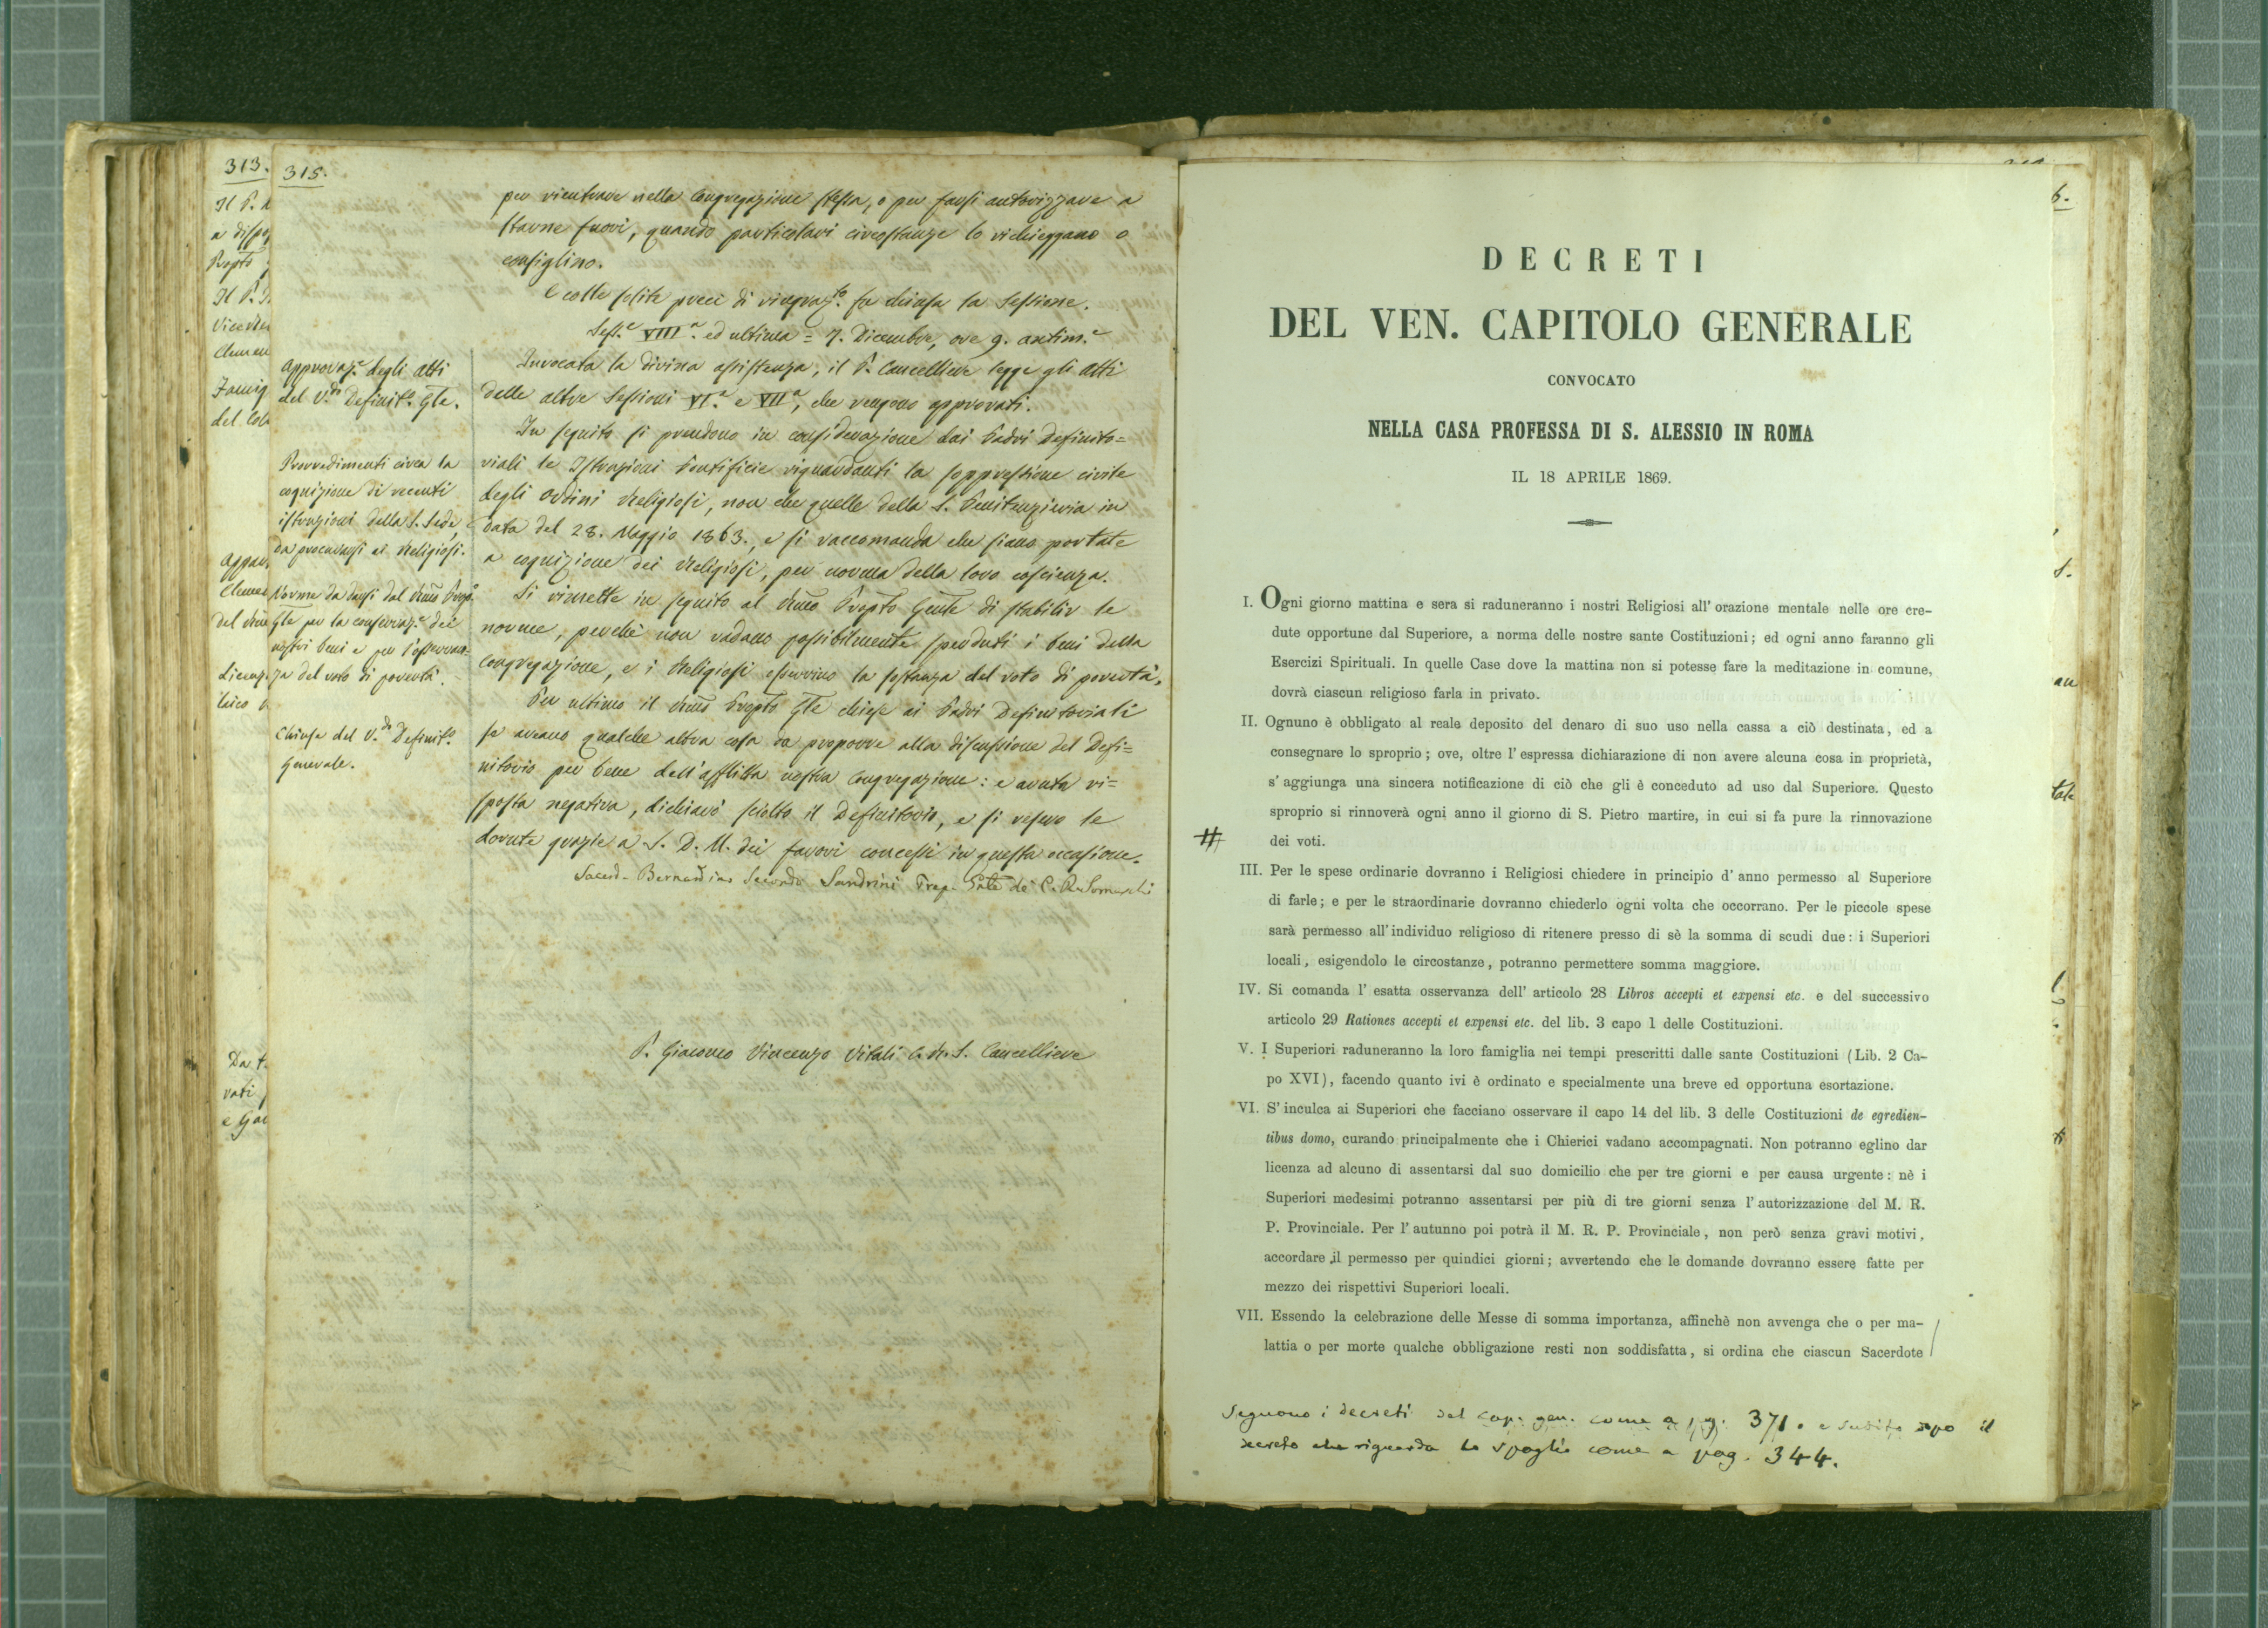 313.
Il P.
Il P.
315.
per rientrare nella Congregazione stessa, o per farsi autorizzare a
starne fuori, quando particolari circostanze lo richieggano o
consiglino.
E colle solite preci di ringraz.to fu chiusa la Sessione.
Sess.e VIII.a ed ultima = 7. Dicembre, ore 9. antim.e
Approvaz.e degli Atti
del V.do Definit.o Gle.
Invocata la divina assistenza, il P. Cancelliere legge gli Atti
delle altre Sessioni VI.a e VII.a, che vengono approvati.
Provvedimenti circa la
cognizione di recenti
istruzioni della S. Sede,
da procurarsi ai Religiosi.
In seguito si prendono in considerazione dai Padri Definito=
riali le Istruzioni Pontificie riguardanti la soppressione civile
degli Ordini Religiosi, non che quelle della S. Penitenzieria in
data del 28. Maggio 1863., e si raccomanda che siano portate
a cognizione dei Religiosi, per norma della loro coscienza.
Norme da darsi dal Rmo Prep.o
Gle per la conservaz.e dei
nostri beni e per l'osservan=
za del voto di povertà.
Si rimette in seguito al Rmo Prepto Gnle di stabilir le
norme, perchè non vadano possibilmente perduti i beni della
Congregazione, e i Religiosi osservino la sostanza del voto di povertà.
Chiusa del V.do Definit.o
Generale.
Per ultimo il Rmo Prepto Gle chiese ai Padri Definitoriali
se aveano qualche altra cosa da proporre alla discussione del Defi=
nitorio pel bene dell'afflitta nostra Congregazione: e avuta ri=
sposta negativa, dichiarò sciolto il Definitorio, e si resero le
dovute grazie a S. D. M. dei favori concessi in questa occasione.
Sacerd. Bernardino Secondo Sandrini Prep. Gnle de' C. R. Somaschi
P. Giacomo Vincenzo Vitali C. R. S. Cancelliere
DECRETI
DEL VEN. CAPITOLO GENERALE
CONVOCATO
NELLA CASA PROFESSA DI S. ALESSIO IN ROMA
IL 18 APRILE 1869.
I. Ogni giorno mattina e sera si raduneranno i nostri Religiosi all' orazione mentale nelle ore cre-
dute opportune dal Superiore, a norma delle nostre sante Costituzioni; ed ogni anno faranno gli
Esercizi Spirituali. In quelle Case dove la mattina non si potesse fare la meditazione in comune,
dovrà ciascun religioso farla in privato.
II. Ognuno è obbligato al reale deposito del denaro di suo uso nella cassa a ciò destinata, ed a
consegnare lo sproprio; ove, oltre l' espressa dichiarazione di non avere alcuna cosa in proprietà,
s' aggiunga una sincera notificazione di ciò che gli è conceduto ad uso dal Superiore. Questo
sproprio si rinnoverà ogni anno il giorno di S. Pietro martire, in cui si fa pure la rinnovazione
# dei voti.
III. Per le spese ordinarie dovranno i Religiosi chiedere in principio d' anno permesso al Superiore
di farle; e per le straordinarie dovranno chiederlo ogni volta che occorrano. Per le piccole spese
sarà permesso all' individuo religioso di ritenere presso di sè la somma di scudi due: i Superiori
locali, esigendolo le circostanze, potranno permettere somma maggiore.
IV. Si comanda l' esatta osservanza dell' articolo 28 Libros accepti et expensi etc. e del successivo
articolo 29 Rationes accepti et expensi etc. del lib. 3 capo 1 delle Costituzioni.
V. I Superiori raduneranno la loro famiglia nei tempi prescritti dalle sante Costituzioni (Lib. 2 Ca-
po XVI), facendo quanto ivi è ordinato e specialmente una breve ed opportuna esortazione.
VI. S' inculca ai Superiori che facciano osservare il capo 14 del lib. 3 delle Costituzioni de egredien-
tibus domo, curando principalmente che i Chierici vadano accompagnati. Non potranno eglino dar
licenza ad alcuno di assentarsi dal suo domicilio che per tre giorni e per causa urgente: nè i
Superiori medesimi potranno assentarsi per più di tre giorni senza l' autorizzazione del M. R.
P. Provinciale. Per l' autunno poi potrà il M. R. P. Provinciale, non però senza gravi motivi,
accordare il permesso per quindici giorni; avvertendo che le domande dovranno essere fatte per
mezzo dei rispettivi Superiori locali.
VII. Essendo la celebrazione delle Messe di somma importanza, affinchè non avvenga che o per ma-
lattia o per morte qualche obbligazione resti non soddisfatta, si ordina che ciascun Sacerdote
Seguono i decreti del cap. gen. come a pg. 371. e subito dopo il
decreto che riguarda lo spoglio come a pag. 344.